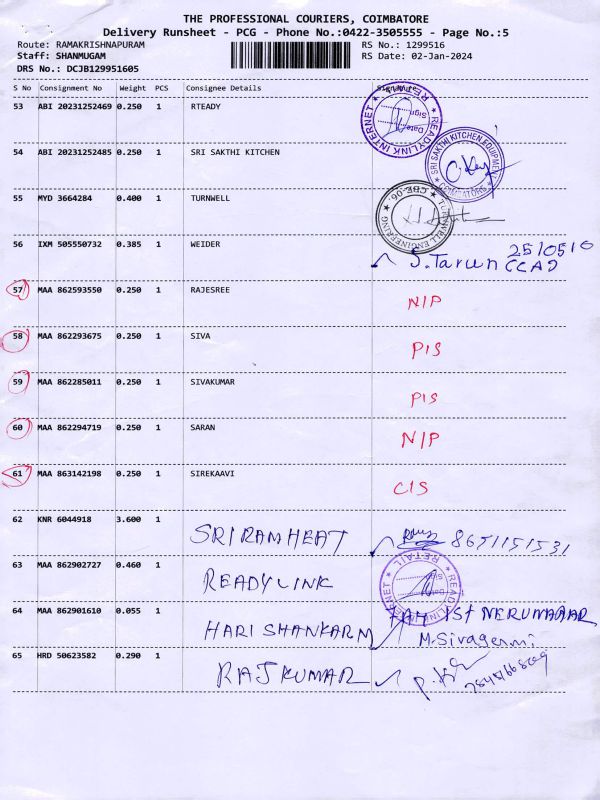 THE PROFESSIONAL COURIERS, COIMBATORE
Delivery Runsheet - PCG - Phone No.:0422-3505555 - Page No.:5
Route: RAMAKRISHNAPURAM RS No.: 1299516
Staff: SHANMUGAM RS Date: 02-Jan-2024
DRS No.: DCJB129951605
S No Consignment No Weight PCS Consignee Details
53 ABI 20231252469 0.250 1 RTEADY
READYLINK INTERNET RETAIL Sign Date
54 ABI 20231252485 0.250 1 SRI SAKTHI KITCHEN
SRI SAKTHI KITCHEN EQUIPMENT COIMBATORE
55 MYD 3664284 0.400 1 TURNWELL
TURNWELL ENGINEERING CBE-06.
56 IXM 505550732 0.385 1 WEIDER
S.Tarun
57 MAA 862593550 0.250 1 RAJESREE NIP
58 MAA 862293675 0.250 1 SIVA PIS
59 MAA 862285011 0.250 1 SIVAKUMAR PIS
60 MAA 862294719 0.250 1 SARAN NIP
61 MAA 863142198 0.250 1 SIREKAAVI CIS
62 KNR 6044918 3.600 1 SRIRAM HEAT 8651151531
63 MAA 862902727 0.460 1 READYLINK
READYLINK INTERNET RETAIL
64 MAA 862901610 0.055 1 HARISHANKARM 1st
65 HRD 50623582 0.290 1 RAJKUMAR